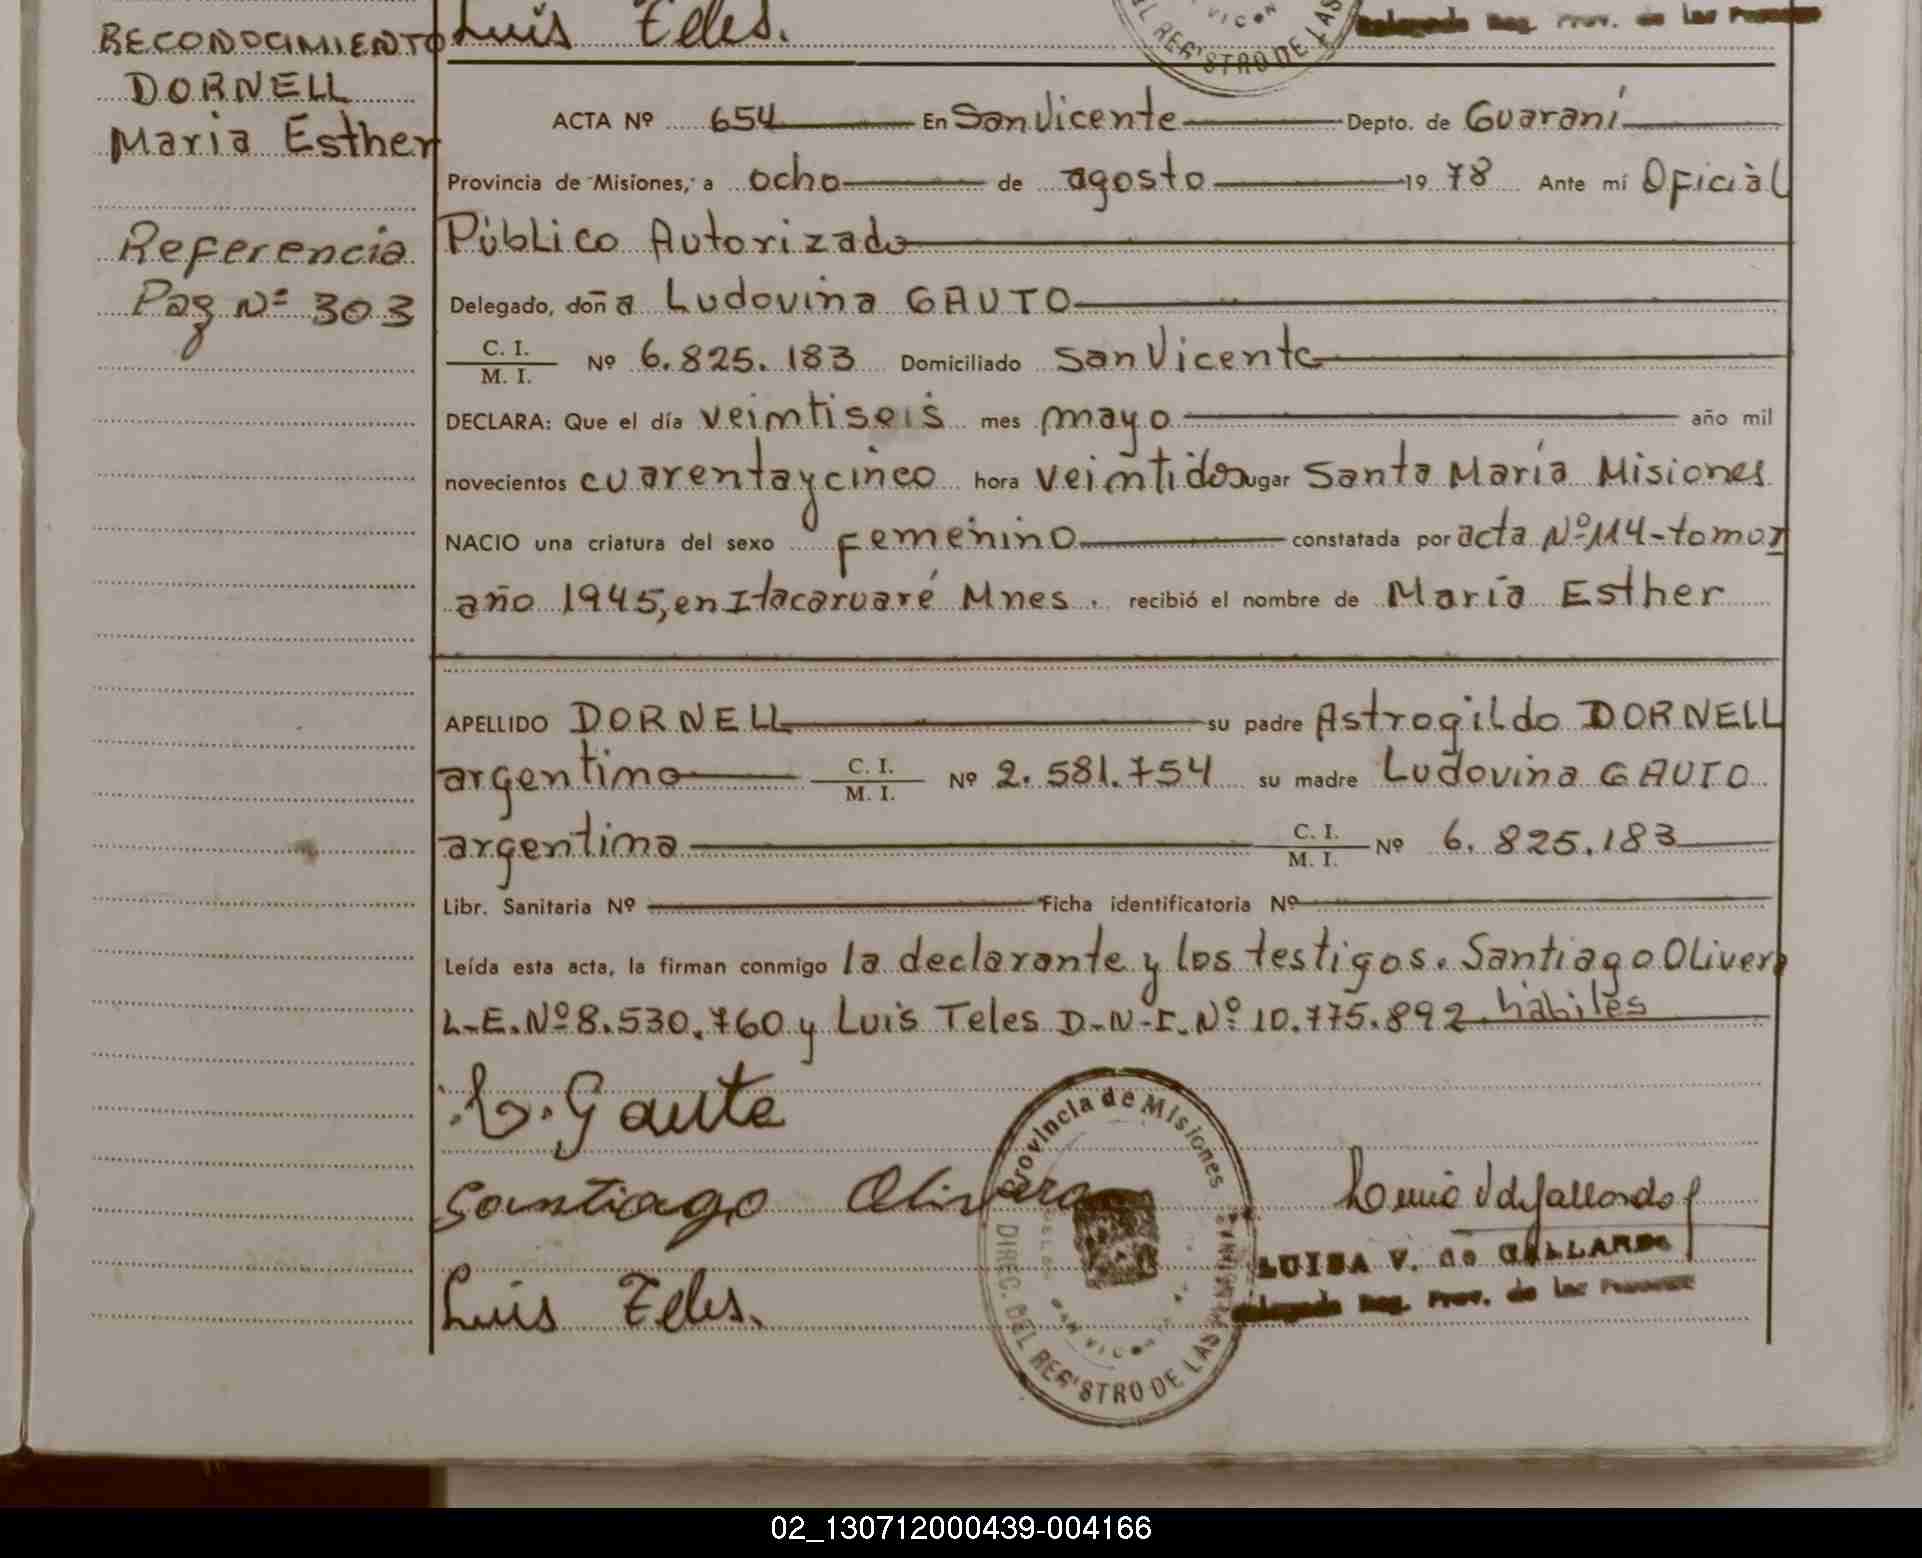 RECONOCIMIENTO
DORNELL
Maria Esther
Referencia
Pag Nº 303
Luis Teles.
EL REGISTRO DE LAS
ACTA Nº 654 En San Vicente Depto. de Guaraní
Provincia de Misiones, a ocho de agosto 1978 Ante mí Oficial
Público Autorizado
Delegado, doña Ludovina GAUTO
C. I.
M. I. Nº 6.825.183 Domiciliado San Vicente
DECLARA: Que el día veimtiseis mes mayo año mil
novecientos cuarentaycinco hora veimtidos lugar Santa María Misiones
NACIO una criatura del sexo femenino constatada por acta Nº 114-tomo I
año 1945, en Itacaruaré Mnes. recibió el nombre de María Esther
APELLIDO DORNELL su padre Astrogildo DORNELL
argentino C. I.
M. I. Nº 2.581.754 su madre Ludovina GAUTO
argentina C. I.
M. I. Nº 6.825.183
Libr. Sanitaria Nº Ficha identificatoria Nº
Leída esta acta, la firman conmigo la declarante y los testigos. Santiago Olivera
L.E. Nº 8.530.760 y Luis Teles D.N.I. Nº 10.775.892 hábiles
L. Gaute
Santiago Olivera
Luis Teles.
Provincia de Misiones
DIREC. DEL REGISTRO DE LAS
LUISA V. de GALLARDO
Delegada Reg. Prov. de las Personas
02_130712000439-004166